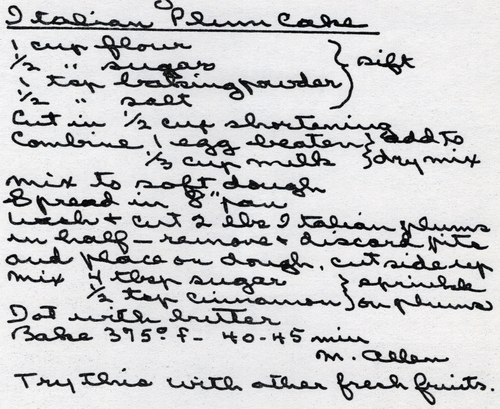 Italian Plum Cake
1 cup flour
1/2 " sugar } sift
1 tsp baking powder
1/2 " salt
Cut in 1/2 cup shortening
Combine 1 egg beaten } add to
1/3 cup milk } dry mix
mix to soft dough
Spread in 8" pan
Wash + cut 2 lbs Italian plums
in half - remove + discard pits
and place on dough. cut side up
mix 4 tbsp sugar } sprinkle
1/2 tsp cinnamon } on plums
Dot with butter
Bake 375° F - 40-45 min
M. Allen
Try this with other fresh fruits.